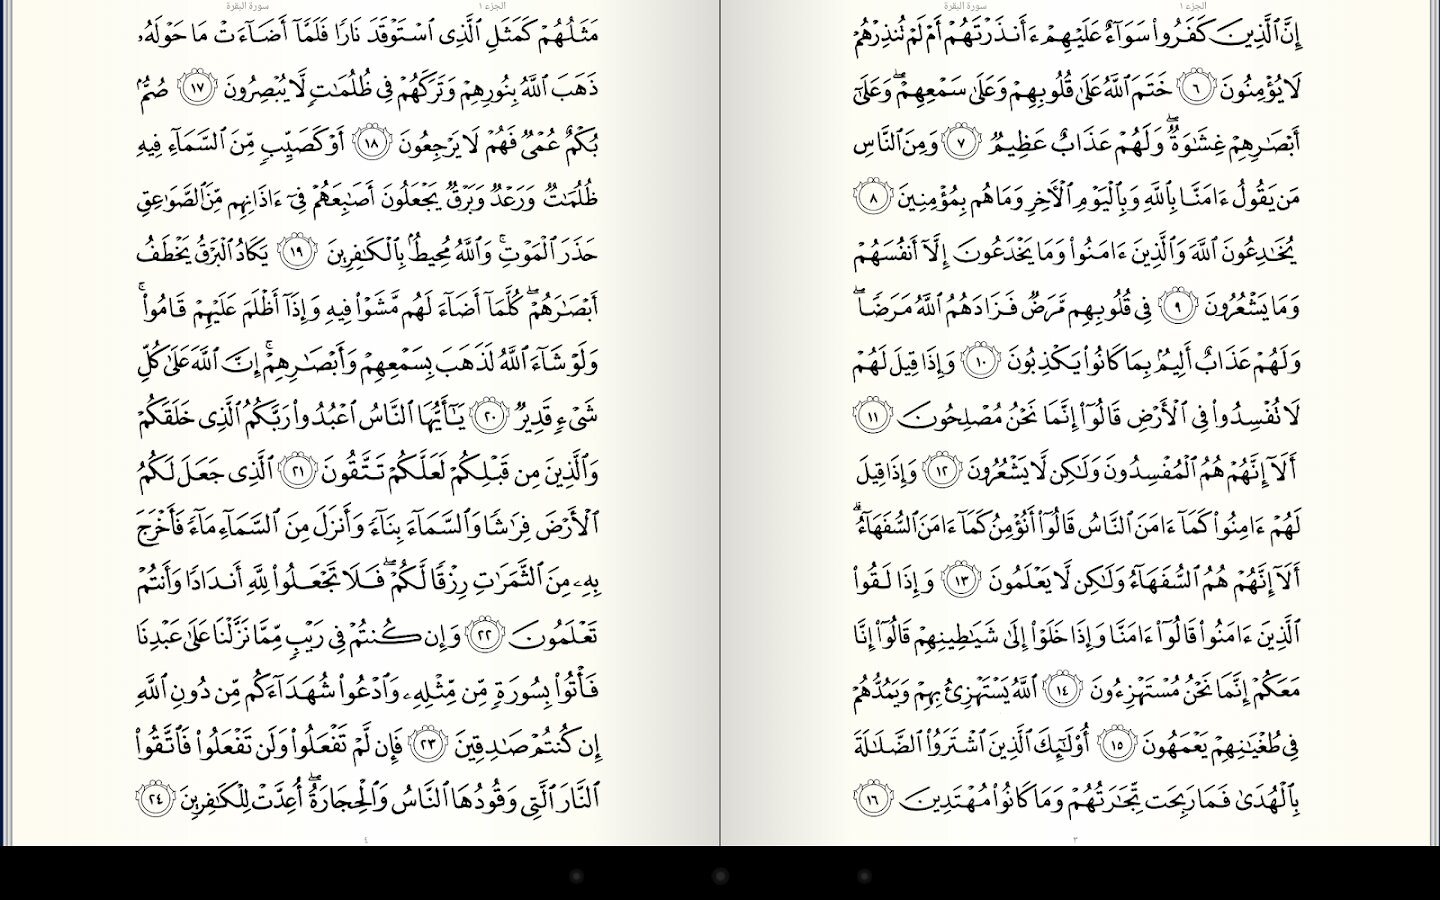 الجزء ١ سورة البقرة
إِنَّ ٱلَّذِينَ كَفَرُوا۟ سَوَآءٌ عَلَيْهِمْ ءَأَنذَرْتَهُمْ أَمْ لَمْ تُنذِرْهُمْ
لَا يُؤْمِنُونَ ٦ خَتَمَ ٱللَّهُ عَلَىٰ قُلُوبِهِمْ وَعَلَىٰ سَمْعِهِمْ ۖ وَعَلَىٰٓ
أَبْصَـٰرِهِمْ غِشَـٰوَةٌ ۖ وَلَهُمْ عَذَابٌ عَظِيمٌ ٧ وَمِنَ ٱلنَّاسِ
مَن يَقُولُ ءَامَنَّا بِٱللَّهِ وَبِٱلْيَوْمِ ٱلْـَٔاخِرِ وَمَا هُم بِمُؤْمِنِينَ ٨
يُخَـٰدِعُونَ ٱللَّهَ وَٱلَّذِينَ ءَامَنُوا۟ وَمَا يَخْدَعُونَ إِلَّآ أَنفُسَهُمْ
وَمَا يَشْعُرُونَ ٩ فِى قُلُوبِهِم مَّرَضٌ فَزَادَهُمُ ٱللَّهُ مَرَضًا ۖ
وَلَهُمْ عَذَابٌ أَلِيمٌۢ بِمَا كَانُوا۟ يَكْذِبُونَ ١٠ وَإِذَا قِيلَ لَهُمْ
لَا تُفْسِدُوا۟ فِى ٱلْأَرْضِ قَالُوٓا۟ إِنَّمَا نَحْنُ مُصْلِحُونَ ١١
أَلَآ إِنَّهُمْ هُمُ ٱلْمُفْسِدُونَ وَلَـٰكِن لَّا يَشْعُرُونَ ١٢ وَإِذَا قِيلَ
لَهُمْ ءَامِنُوا۟ كَمَآ ءَامَنَ ٱلنَّاسُ قَالُوٓا۟ أَنُؤْمِنُ كَمَآ ءَامَنَ ٱلسُّفَهَآءُ ۗ
أَلَآ إِنَّهُمْ هُمُ ٱلسُّفَهَآءُ وَلَـٰكِن لَّا يَعْلَمُونَ ١٣ وَإِذَا لَقُوا۟
ٱلَّذِينَ ءَامَنُوا۟ قَالُوٓا۟ ءَامَنَّا وَإِذَا خَلَوْا۟ إِلَىٰ شَيَـٰطِينِهِمْ قَالُوٓا۟ إِنَّا
مَعَكُمْ إِنَّمَا نَحْنُ مُسْتَهْزِءُونَ ١٤ ٱللَّهُ يَسْتَهْزِئُ بِهِمْ وَيَمُدُّهُمْ
فِى طُغْيَـٰنِهِمْ يَعْمَهُونَ ١٥ أُو۟لَـٰٓئِكَ ٱلَّذِينَ ٱشْتَرَوُا۟ ٱلضَّلَـٰلَةَ
بِٱلْهُدَىٰ فَمَا رَبِحَت تِّجَـٰرَتُهُمْ وَمَا كَانُوا۟ مُهْتَدِينَ ١٦
٣
الجزء ١ سورة البقرة
مَثَلُهُمْ كَمَثَلِ ٱلَّذِى ٱسْتَوْقَدَ نَارًا فَلَمَّآ أَضَآءَتْ مَا حَوْلَهُۥ
ذَهَبَ ٱللَّهُ بِنُورِهِمْ وَتَرَكَهُمْ فِى ظُلُمَـٰتٍ لَّا يُبْصِرُونَ ١٧ صُمٌّۢ
بُكْمٌ عُمْىٌ فَهُمْ لَا يَرْجِعُونَ ١٨ أَوْ كَصَيِّبٍ مِّنَ ٱلسَّمَآءِ فِيهِ
ظُلُمَـٰتٌ وَرَعْدٌ وَبَرْقٌ يَجْعَلُونَ أَصَـٰبِعَهُمْ فِىٓ ءَاذَانِهِم مِّنَ ٱلصَّوَٰعِقِ
حَذَرَ ٱلْمَوْتِ ۚ وَٱللَّهُ مُحِيطٌۢ بِٱلْكَـٰفِرِينَ ١٩ يَكَادُ ٱلْبَرْقُ يَخْطَفُ
أَبْصَـٰرَهُمْ ۖ كُلَّمَآ أَضَآءَ لَهُم مَّشَوْا۟ فِيهِ وَإِذَآ أَظْلَمَ عَلَيْهِمْ قَامُوا۟ ۚ
وَلَوْ شَآءَ ٱللَّهُ لَذَهَبَ بِسَمْعِهِمْ وَأَبْصَـٰرِهِمْ ۚ إِنَّ ٱللَّهَ عَلَىٰ كُلِّ
شَىْءٍ قَدِيرٌ ٢٠ يَـٰٓأَيُّهَا ٱلنَّاسُ ٱعْبُدُوا۟ رَبَّكُمُ ٱلَّذِى خَلَقَكُمْ
وَٱلَّذِينَ مِن قَبْلِكُمْ لَعَلَّكُمْ تَتَّقُونَ ٢١ ٱلَّذِى جَعَلَ لَكُمُ
ٱلْأَرْضَ فِرَٰشًا وَٱلسَّمَآءَ بِنَآءً وَأَنزَلَ مِنَ ٱلسَّمَآءِ مَآءً فَأَخْرَجَ
بِهِۦ مِنَ ٱلثَّمَرَٰتِ رِزْقًا لَّكُمْ ۖ فَلَا تَجْعَلُوا۟ لِلَّهِ أَندَادًا وَأَنتُمْ
تَعْلَمُونَ ٢٢ وَإِن كُنتُمْ فِى رَيْبٍ مِّمَّا نَزَّلْنَا عَلَىٰ عَبْدِنَا
فَأْتُوا۟ بِسُورَةٍ مِّن مِّثْلِهِۦ وَٱدْعُوا۟ شُهَدَآءَكُم مِّن دُونِ ٱللَّهِ
إِن كُنتُمْ صَـٰدِقِينَ ٢٣ فَإِن لَّمْ تَفْعَلُوا۟ وَلَن تَفْعَلُوا۟ فَٱتَّقُوا۟
ٱلنَّارَ ٱلَّتِى وَقُودُهَا ٱلنَّاسُ وَٱلْحِجَارَةُ ۖ أُعِدَّتْ لِلْكَـٰفِرِينَ ٢٤
٤